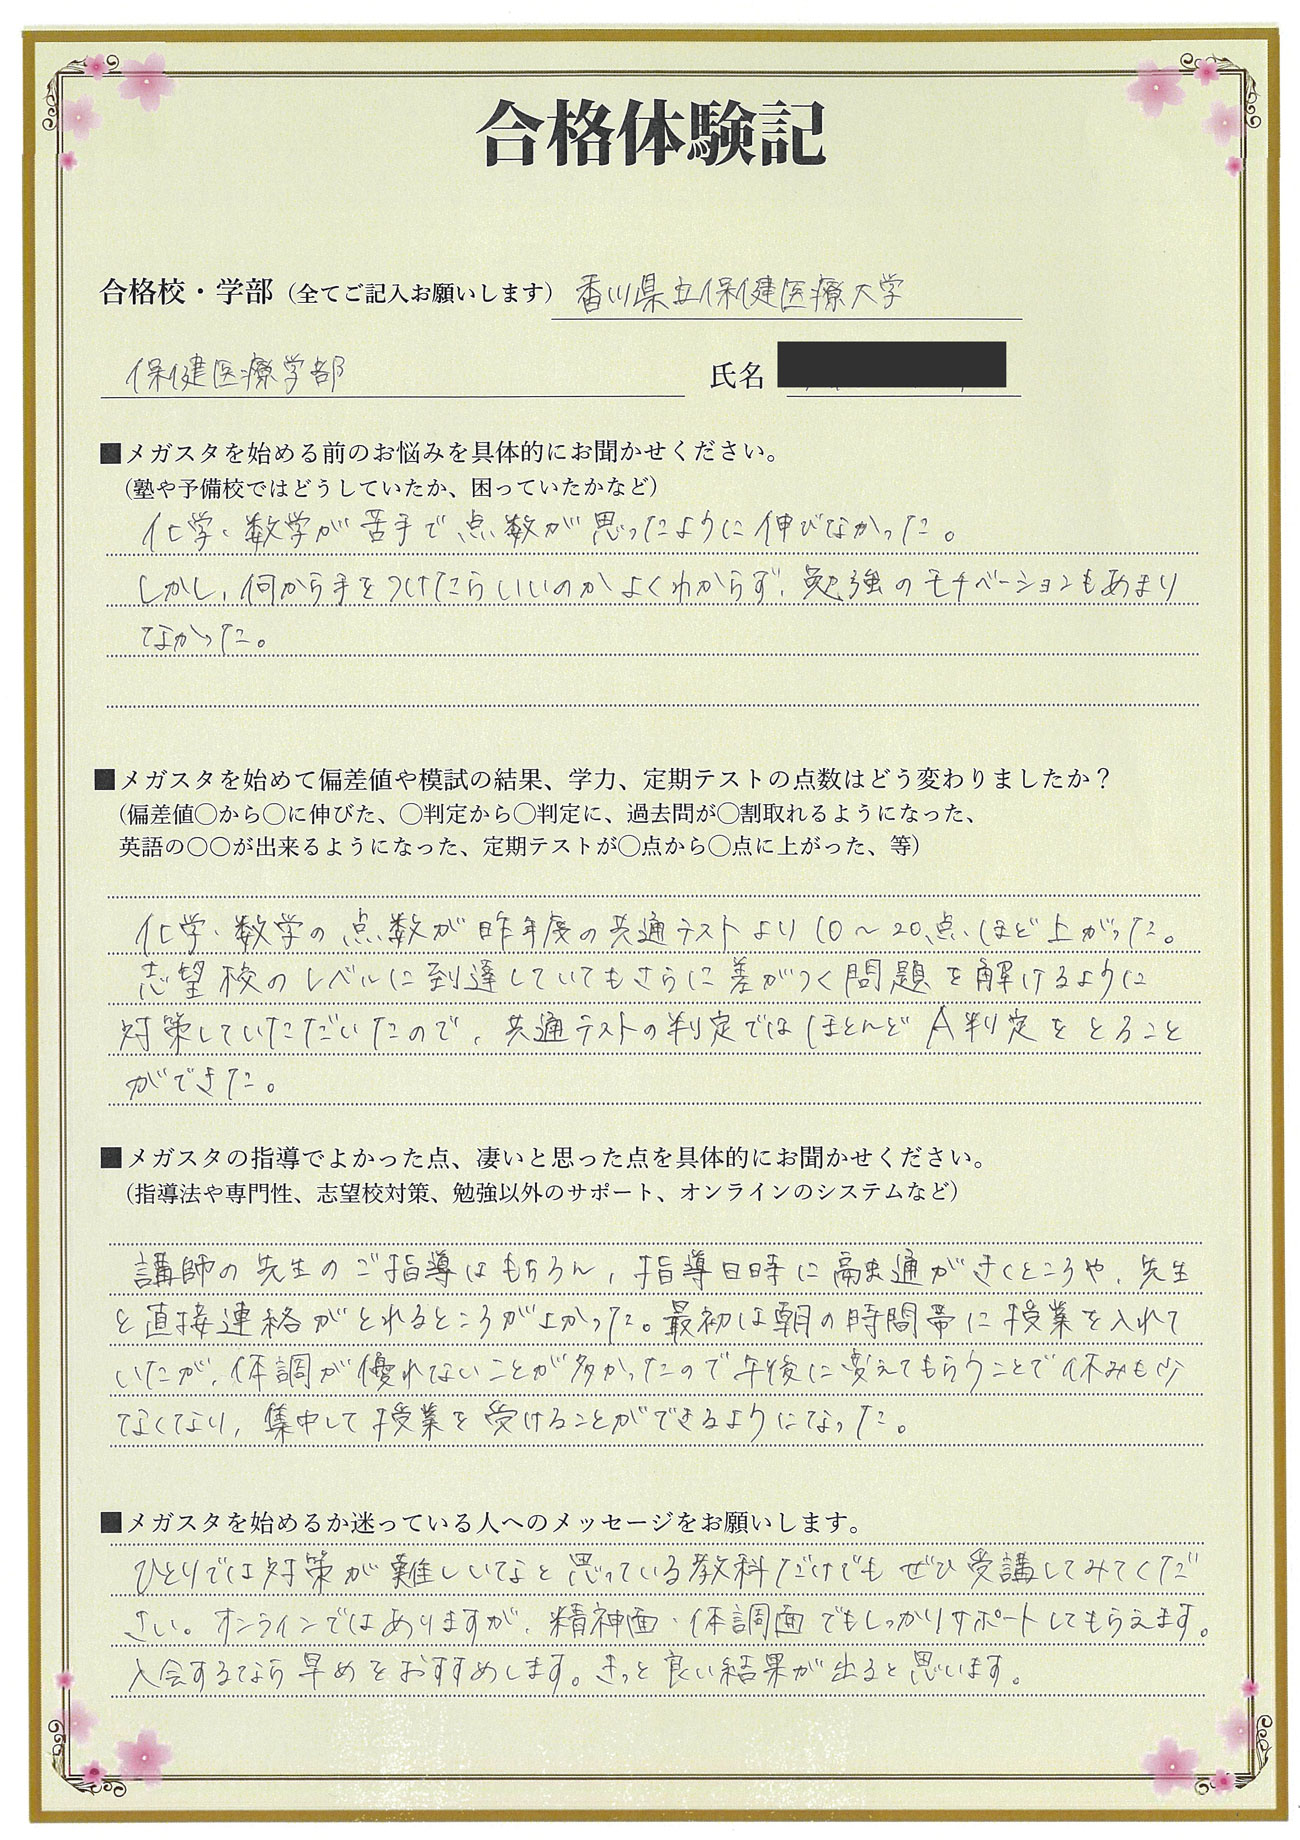 合格体験記
合格校・学部（全てご記入お願いします） 香川県立保健医療大学
保健医療学部 氏名
■メガスタを始める前のお悩みを具体的にお聞かせください。
（塾や予備校ではどうしていたか、困っていたかなど）
化学・数学が苦手で点数が思ったように伸びなかった。
しかし、何から手をつけたらいいのかよくわからず、勉強のモチベーションもあまり
なかった。
■メガスタを始めて偏差値や模試の結果、学力、定期テストの点数はどう変わりましたか？
（偏差値〇から〇に伸びた、〇判定から〇判定に、過去問が〇割取れるようになった、
英語の〇〇が出来るようになった、定期テストが〇点から〇点に上がった、等）
化学・数学の点数が昨年度の共通テストより10〜20点ほど上がった。
志望校のレベルに到達していてもさらに差がつく問題を解けるように
対策していただいたので、共通テストの判定ではほとんどA判定をとること
ができた。
■メガスタの指導でよかった点、凄いと思った点を具体的にお聞かせください。
（指導法や専門性、志望校対策、勉強以外のサポート、オンラインのシステムなど）
講師の先生のご指導はもちろん、指導日時に融通がきくところや、先生
と直接連絡がとれるところがよかった。最初は朝の時間帯に授業を入れて
いたが、体調が優れないことが多かったので午後に変えてもらうことで休みも少
なくなり、集中して授業を受けることができるようになった。
■メガスタを始めるか迷っている人へのメッセージをお願いします。
ひとりでは対策が難しいなと思っている教科だけでもぜひ受講してみてくだ
さい。オンラインではありますが、精神面・体調面でもしっかりサポートしてもらえます。
入会するなら早めをおすすめします。きっと良い結果が出ると思います。